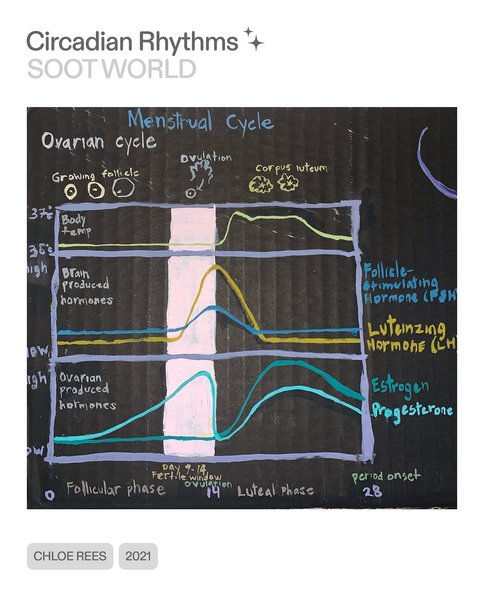 Circadian Rhythms
SOOT WORLD
Menstrual Cycle
Ovarian cycle
Growing follicle
Ovulation
Corpus luteum
37c
36c
Body
temp
high
Brain
produced
hormones
low
Follicle-
Stimulating
Hormone (FSH
Luteinzing
Hormone (LH
high
Ovarian
produced
hormones
low
Estrogen
Progesterone
Day 9-14
Fertile window
ovulation
period onset
0
Follicular phase
14
Luteal phase
28
CHLOE REES
2021